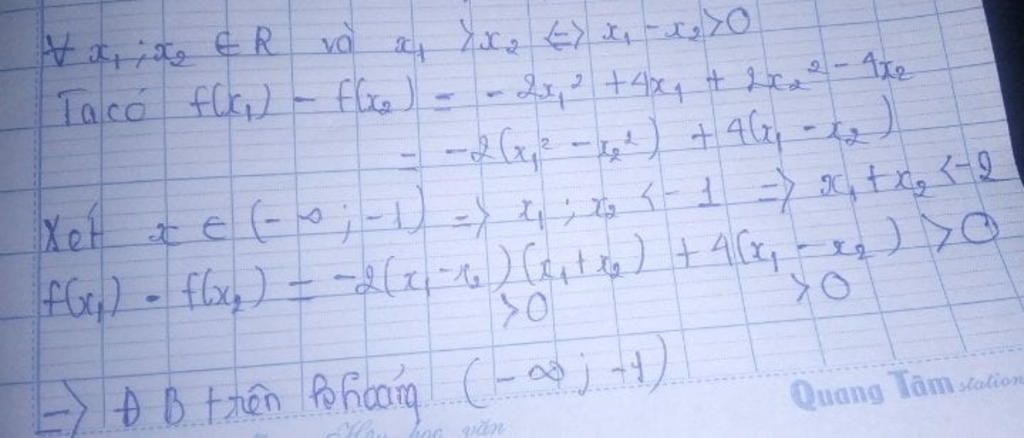 ∀ x₁ ; x₂ ∈ R và x₁ > x₂ <=> x₁ - x₂ > 0
Ta có f(x₁) - f(x₂) = - 2x₁² + 4x₁ + 2x₂² - 4x₂
= -2(x₁² - x₂²) + 4(x₁ - x₂)
Xét x ∈ (-∞ ; -1) => x₁ ; x₂ < -1 => x₁ + x₂ < -2
f(x₁) - f(x₂) = -2(x₁ - x₂)(x₁ + x₂) + 4(x₁ - x₂) > 0
>0 >0
=> ĐB trên khoảng (-∞ ; -1)
Quang Tâm station
Hay học văn